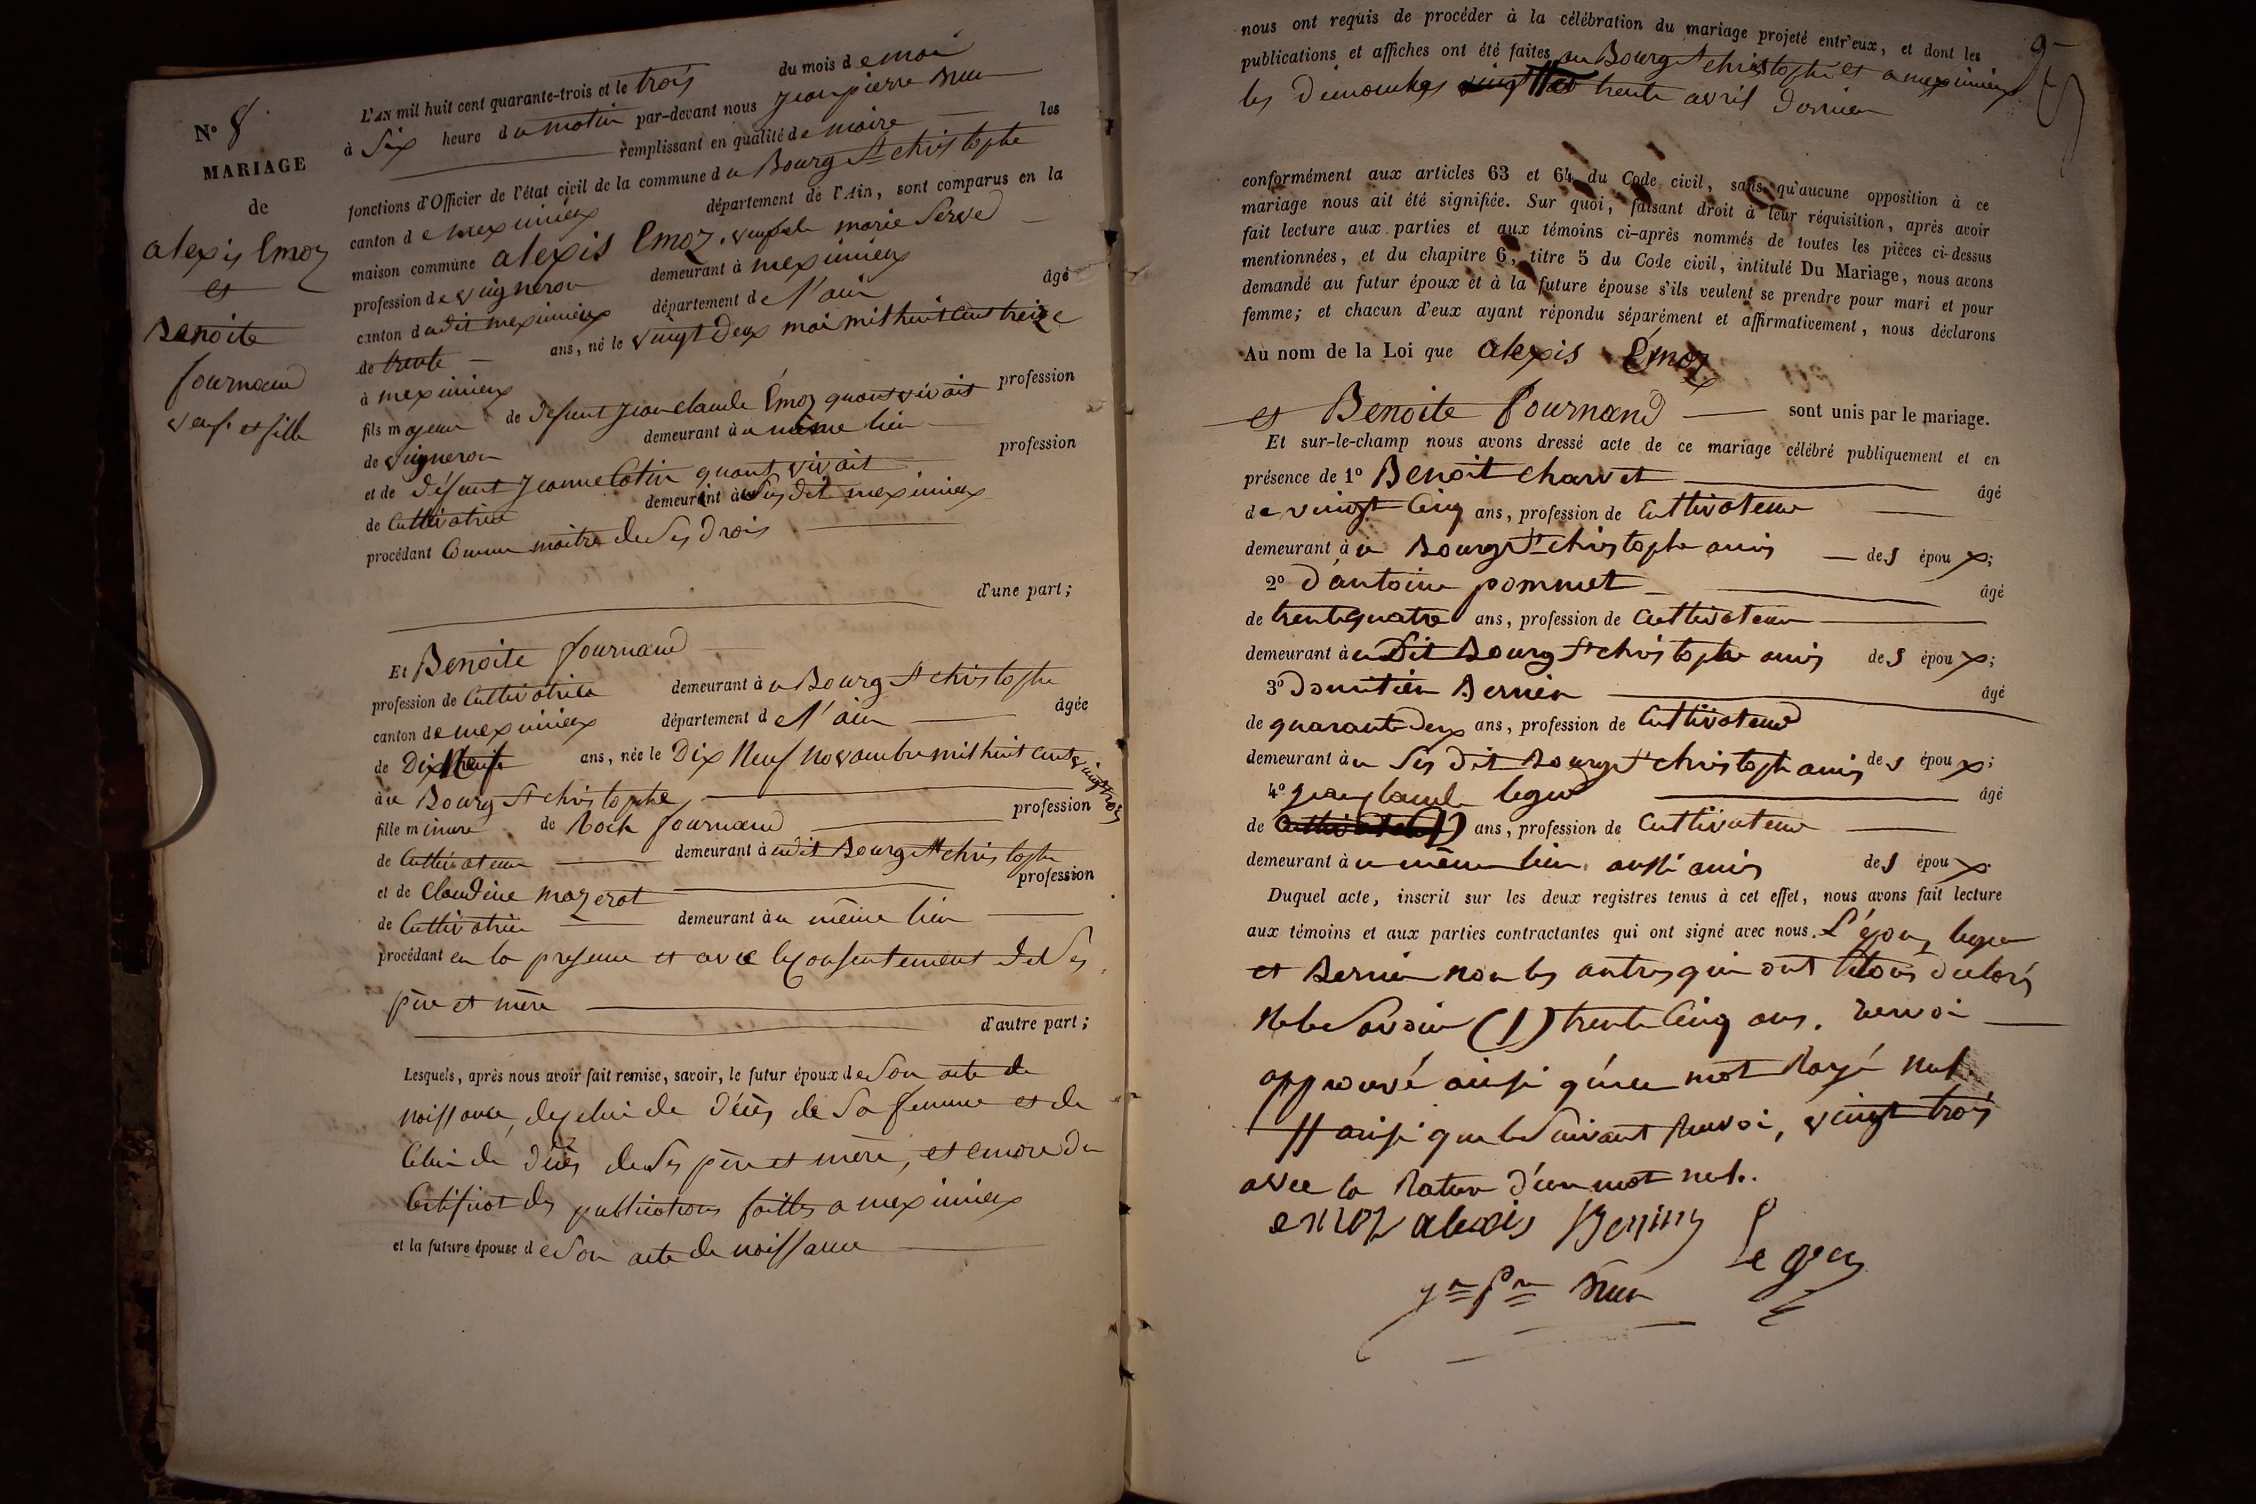 N.o 8
MARIAGE
de
alexis Emoz
et
Benoite
fournand
veuf et fille
L'AN mil huit cent quarante-trois et le trois du mois de mai
à Six heure du matin par-devant nous jean pierre Brun
remplissant en qualité de maire les
fonctions d'Officier de l'état civil de la commune de Bourg St christophe
canton de meximieux département de l'Ain, sont comparus en la
maison commune alexis Emoz, veuf de marie Serve
profession de vigneron demeurant à meximieux
canton dudit meximieux département de l'ain âgé
de trente ans, né le vingt deux mai mil huit cent treize
à meximieux
fils majeur de défunt jean claude Emoz quant vivait profession
de vigneron demeurant à u même lieu
et de défunt jeanne Cotin quant vivait profession
de Cultivatrice demeurant à u Sus dit meximieux
procédant Comme maitre de Ses Drois
d'une part;
Et Benoite fournand
profession de Cultivatrice demeurant à u Bourg St christophe
canton de meximieux département de l'ain âgée
de Dix Neuf ans, née le Dix Neuf Novembre mil huit cent vingt trois
à u Bourg St christophe
fille mineure de Roch fournand profession
de Cultivateur demeurant à udit Bourg St christophe
et de claudine mazerat profession
de Cultivatrice demeurant à u même lieu
procédant en la presence et avec le consentement de Ses
père et mère
d'autre part;
Lesquels, après nous avoir fait remise, savoir, le futur époux de Son acte de
naissance, de celui de décès de Sa femme et de
Celui de décès de Ses père et mère, et encore du
Certificat des publications faittes a meximieux
et la future épouse de Son acte de naissance
nous ont requis de procéder à la célébration du mariage projeté entr'eux, et dont les
publications et affiches ont été faites au Bourg St christophe et a meximieux
les dimanches trente avril dernier
conformément aux articles 63 et 64 du Code civil, sans qu'aucune opposition à ce
mariage nous ait été signifiée. Sur quoi, faisant droit à leur réquisition, après avoir
fait lecture aux parties et aux témoins ci-après nommés de toutes les pièces ci-dessus
mentionnées, et du chapitre 6, titre 5 du Code civil, intitulé Du Mariage, nous avons
demandé au futur époux et à la future épouse s'ils veulent se prendre pour mari et pour
femme; et chacun d'eux ayant répondu séparément et affirmativement, nous déclarons
Au nom de la Loi que alexis Emoz
et Benoite fournand sont unis par le mariage.
Et sur-le-champ nous avons dressé acte de ce mariage célébré publiquement et en
présence de 1o Benoit charvet âgé
de vingt Cinq ans, profession de Cultivateur
demeurant à u Bourg St christophe amis des époux;
2o d'antoine pommet âgé
de trente quatre ans, profession de Cultivateur
demeurant à u Dit Bourg St christophe amis des époux;
3o Domitien Bernin âgé
de quarante Deux ans, profession de Cultivateur
demeurant à u Sus dit Bourg St christophe amis des époux;
4o jean claude legeu âgé
de (1) ans, profession de Cultivateur
demeurant à u même lieu aussi amis des époux.
Duquel acte, inscrit sur les deux registres tenus à cet effet, nous avons fait lecture
aux témoins et aux parties contractantes qui ont signé avec nous. L'époux, legeu
et Bernin non les autres qui ont tous déclaré
Ne le Savoir (1) trente Cinq ans. renvoi
approuvé ainsi qu'un mot Rayé nul.
ainsi que le Suivant Renvoi, vingt trois
avec la Rature d'un mot nul.
emoz alexis Bernin
Legeu
jn pre Brun